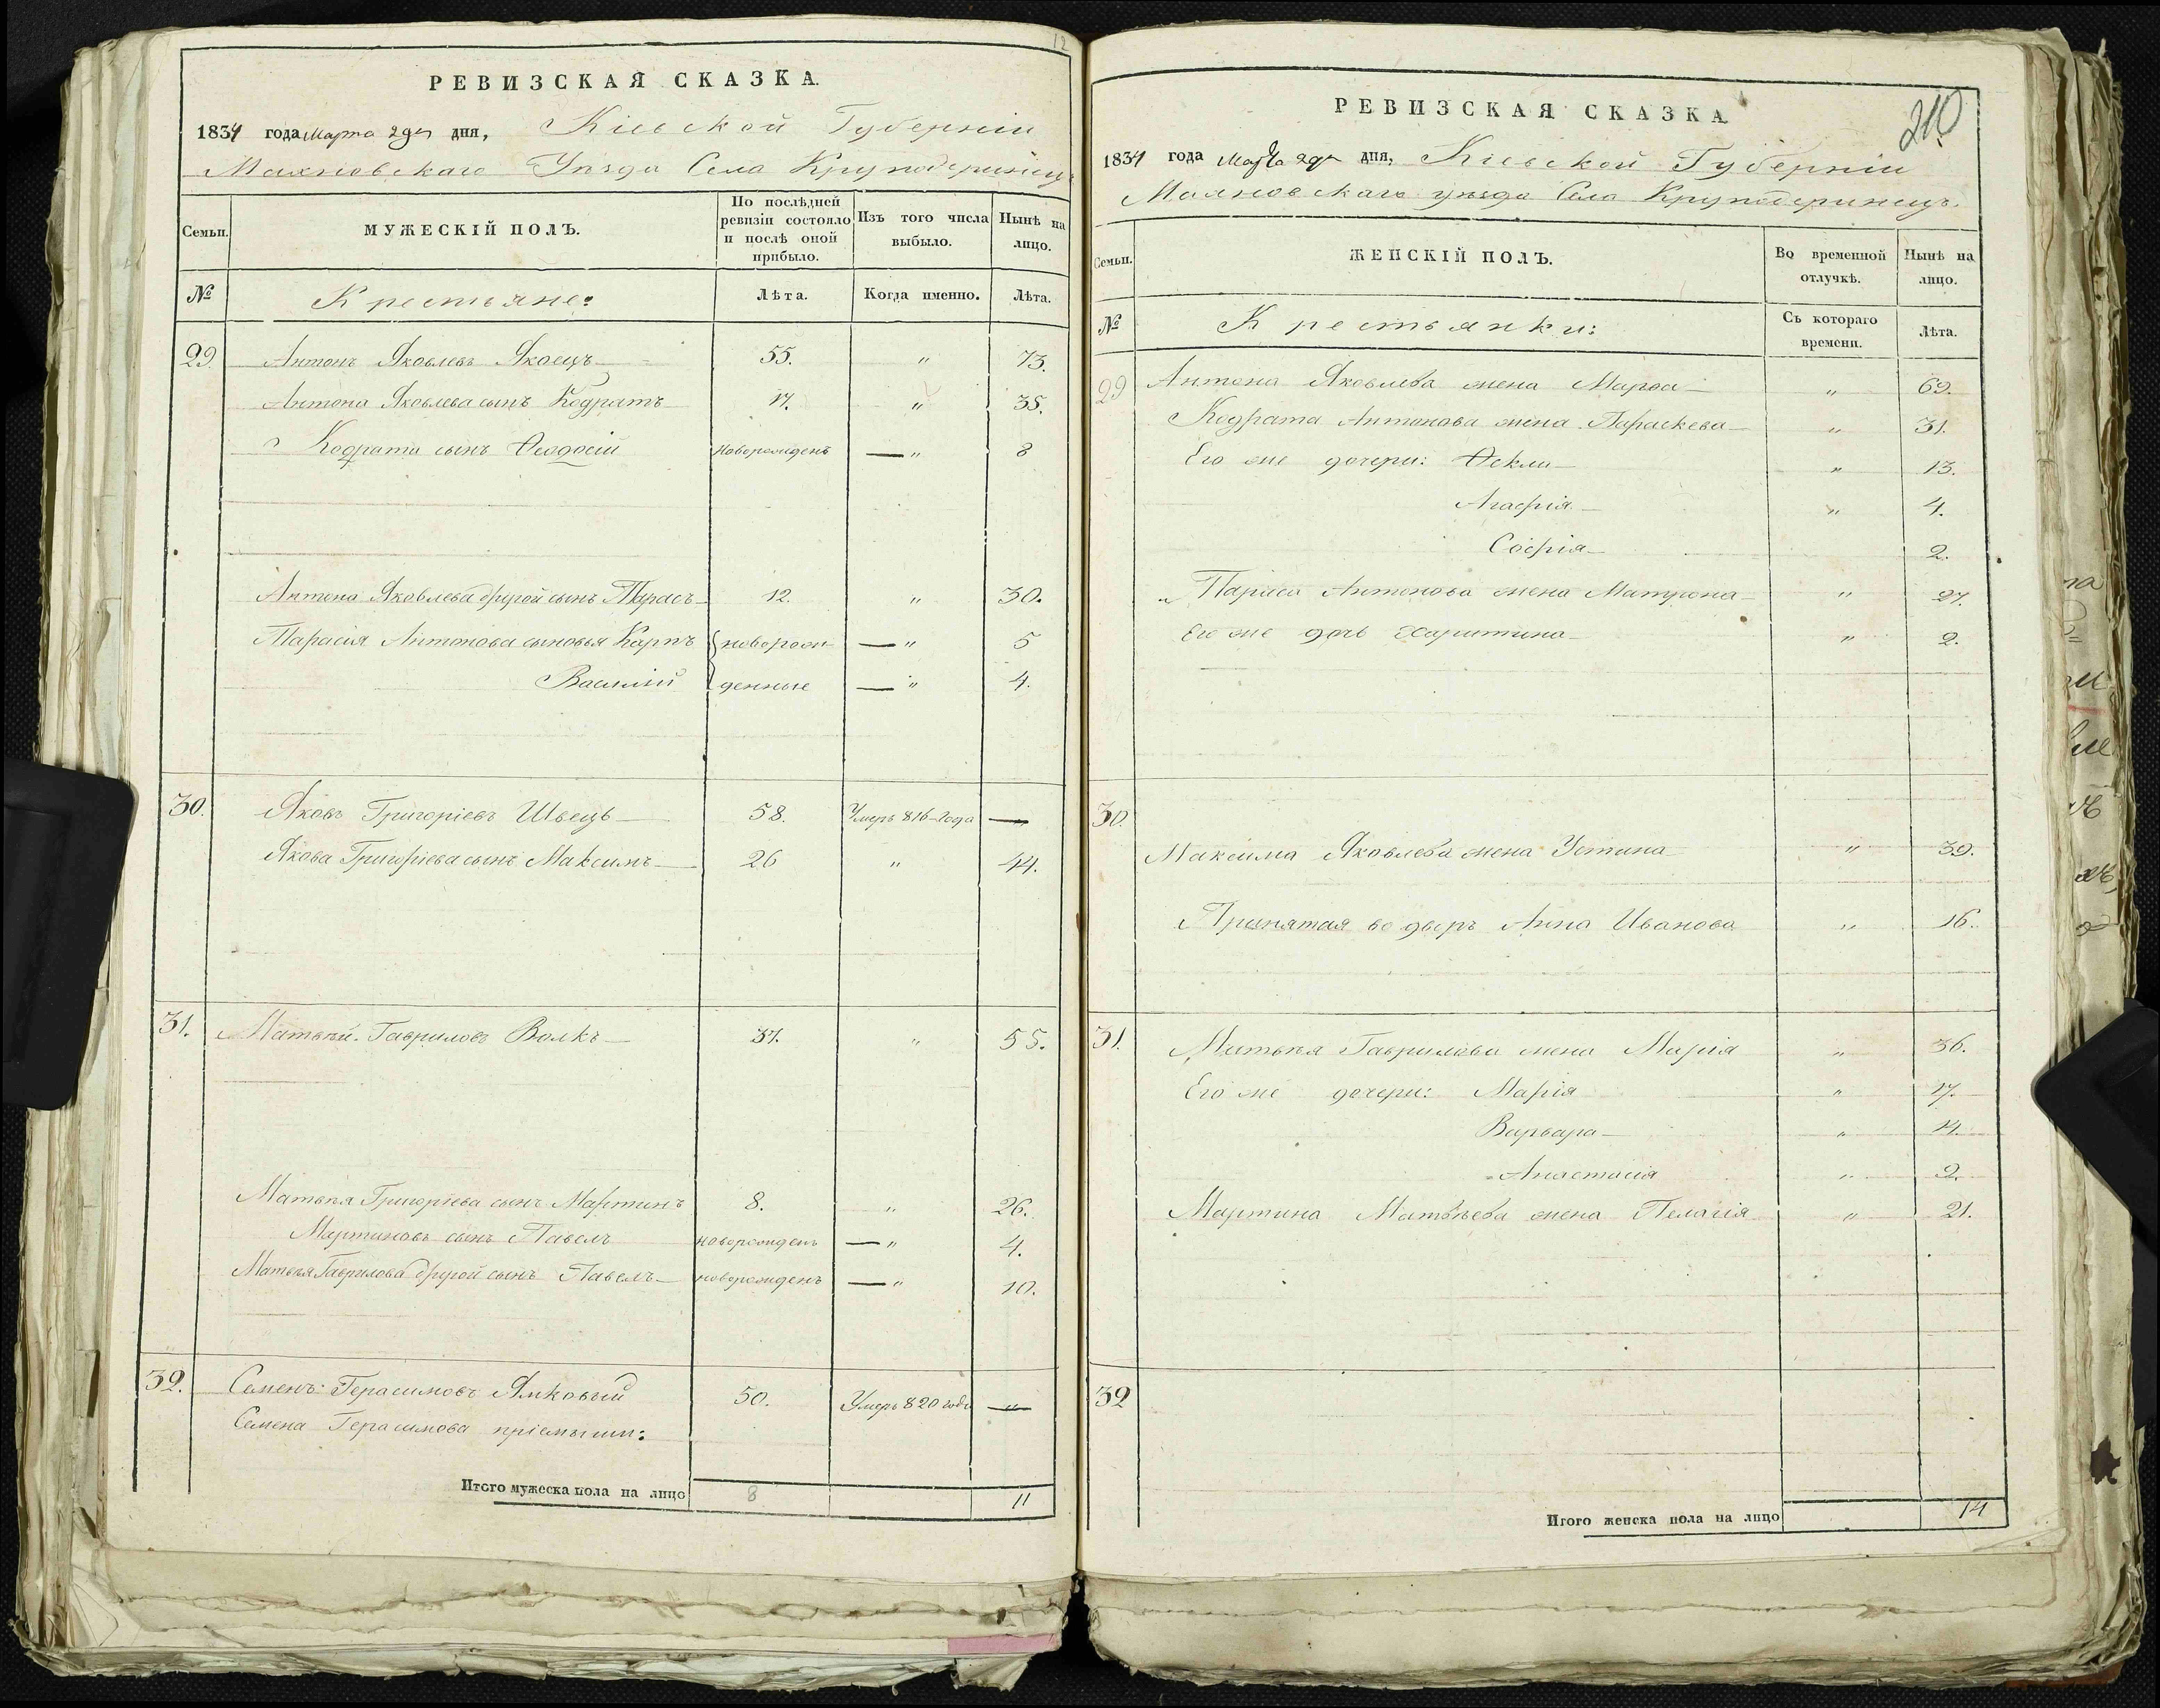 12
РЕВИЗСКАЯ СКАЗКА.
1834 года Марта 2 дня, Кіевской Губерніи
Махновскаго Уѣзда Села Круподеринецъ
Семьи.
МУЖЕСКІЙ ПОЛЪ.
По послѣдней ревизіи состояло и послѣ оной прибыло.
Изъ того числа выбыло.
Нынѣ на лицо.
№ Крестьяне: Лѣта. Когда именно. Лѣта.
29 Антонъ Яковлевъ 55. " 73.
Антона Яковлева сынъ Кодратъ 17. " 35.
Кодрата сынъ Ѳеодосій новорожденъ — " 8
Антона Яковлева другой сынъ Тарасъ 12. " 30.
Тарасія Антонова сыновья Карпъ { новорож- — " 5
Василій { денные — " 4.
30. Яковъ Григоріевъ Швецъ 58. Умеръ 816 года —
Якова Григоріева сынъ Максимъ 26 " 44.
31. Матвѣй Гавриловъ Волкъ 37. " 55.
Матвѣя Григоріева сынъ Мартинъ 8. " 26.
Мартиновъ сынъ Павелъ новорожденъ — " 4.
Матвѣя Гаврилова другой сынъ Павелъ новорожденъ — " 10.
32. Семенъ Герасимовъ Ямковый 50. Умеръ 820 года — "
Семена Герасимова пріемыши:
Итого мужеска пола на лицо 8 11
210
РЕВИЗСКАЯ СКАЗКА
1834 года Марта 2 дня, Кіевской Губерніи
Махновскаго уѣзда Села Круподеринецъ.
Семьи.
ЖЕНСКІЙ ПОЛЪ.
Во временной отлучкѣ.
Нынѣ на лицо.
№ Крестьянки: Съ котораго времени. Лѣта.
29 Антона Яковлева жена Марѳа " 69.
Кодрата Антонова жена Параскева " 31.
Его же дочери: Ѳекла " 13.
Агафія " 4.
Софія 2.
Тараса Антонова жена Матрона " 27.
Его же дочь Харитина " 2.
30.
Максима Яковлева жена Устина " 39.
Принятая во дворъ Анна Иванова " 16.
31. Матвѣя Гаврилова жена Марія " 36.
Его же дочери: Марія " 17.
Варвара " 14.
Анастасія " 2.
Мартина Матвѣева жена Пелагія " 21.
32
Итого женска пола на лицо 14